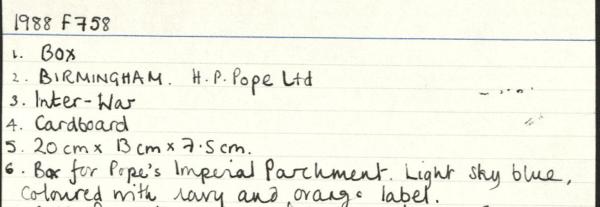 1988 F758
1. Box
2. BIRMINGHAM. H.P. Pope Ltd
3. Inter-War
4. Cardboard
5. 20 cm x 13 cm x 7.5 cm.
6. Box for Pope's Imperial Parchment. Light sky blue,
coloured with navy and orange label.